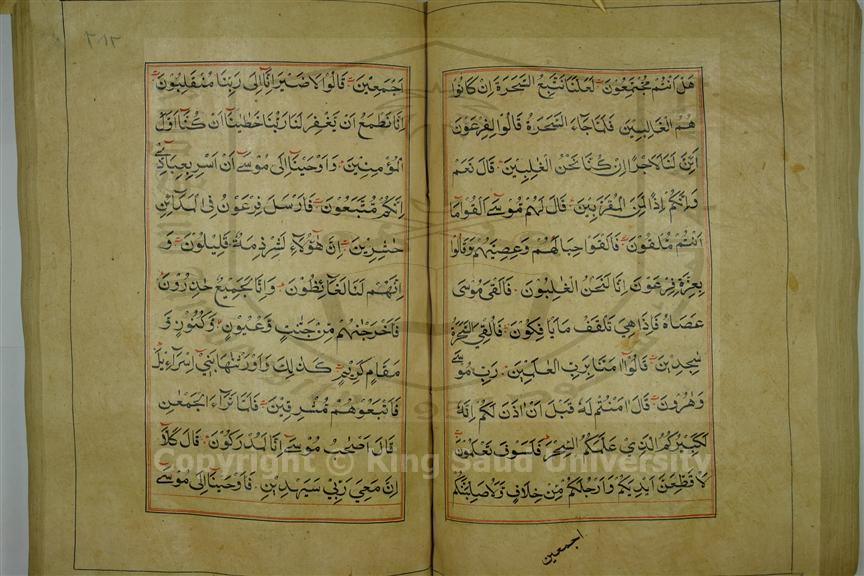 هَلْ اَنْتُمْ مُجْتَمِعُوْنَ لَعَلَّنَا نَتَّبِعُ السَّحَرَةَ اِنْ كَانُوْا
هُمُ الْغَالِبِيْنَ فَلَمَّا جَاءَ السَّحَرَةُ قَالُوْا لِفِرْعَوْنَ
اَئِنَّ لَنَا لَاَجْرًا اِنْ كُنَّا نَحْنُ الْغٰلِبِيْنَ قَالَ نَعَمْ
وَاِنَّكُمْ اِذًا لَمِنَ الْمُقَرَّبِيْنَ قَالَ لَهُمْ مُوْسٰى اَلْقُوْا مَا
اَنْتُمْ مُلْقُوْنَ فَاَلْقَوْا حِبَالَهُمْ وَعِصِيَّهُمْ وَقَالُوْا
بِعِزَّةِ فِرْعَوْنَ اِنَّا لَنَحْنُ الْغٰلِبُوْنَ فَاَلْقٰى مُوْسٰى
عَصَاهُ فَاِذَا هِيَ تَلْقَفُ مَا يَاْفِكُوْنَ فَاُلْقِيَ السَّحَرَةُ
سٰجِدِيْنَ قَالُوْا اٰمَنَّا بِرَبِّ الْعٰلَمِيْنَ رَبِّ مُوْسٰى
وَهٰرُوْنَ قَالَ اٰمَنْتُمْ لَهُ قَبْلَ اَنْ اٰذَنَ لَكُمْ اِنَّهُ
لَكَبِيْرُكُمُ الَّذِيْ عَلَّمَكُمُ السِّحْرَ فَلَسَوْفَ تَعْلَمُوْنَ
لَاُقَطِّعَنَّ اَيْدِيَكُمْ وَاَرْجُلَكُمْ مِنْ خِلَافٍ وَلَاُصَلِّبَنَّكُمْ
اجمعين
٢١٢
اَجْمَعِيْنَ قَالُوْا لَا ضَيْرَ اِنَّا اِلٰى رَبِّنَا مُنْقَلِبُوْنَ
اِنَّا نَطْمَعُ اَنْ يَغْفِرَ لَنَا رَبُّنَا خَطٰيٰنَا اَنْ كُنَّا اَوَّلَ
الْمُؤْمِنِيْنَ وَاَوْحَيْنَا اِلٰى مُوْسٰى اَنْ اَسْرِ بِعِبَادِيْ
اِنَّكُمْ مُتَّبَعُوْنَ فَاَرْسَلَ فِرْعَوْنُ فِى الْمَدَائِنِ
حٰشِرِيْنَ اِنَّ هٰؤُلَاءِ لَشِرْذِمَةٌ قَلِيْلُوْنَ وَ
اِنَّهُمْ لَنَا لَغَائِظُوْنَ وَاِنَّا لَجَمِيْعٌ حٰذِرُوْنَ
فَاَخْرَجْنٰهُمْ مِنْ جَنّٰتٍ وَعُيُوْنٍ وَكُنُوْزٍ وَ
مَقَامٍ كَرِيْمٍ كَذٰلِكَ وَاَوْرَثْنٰهَا بَنِيْ اِسْرَآءِيْلَ
فَاَتْبَعُوْهُمْ مُشْرِقِيْنَ فَلَمَّا تَرَآءَ الْجَمْعٰنِ
قَالَ اَصْحٰبُ مُوْسٰى اِنَّا لَمُدْرَكُوْنَ قَالَ كَلَّا
اِنَّ مَعِيَ رَبِّيْ سَيَهْدِيْنِ فَاَوْحَيْنَا اِلٰى مُوْسٰى
Copyright © King Saud University